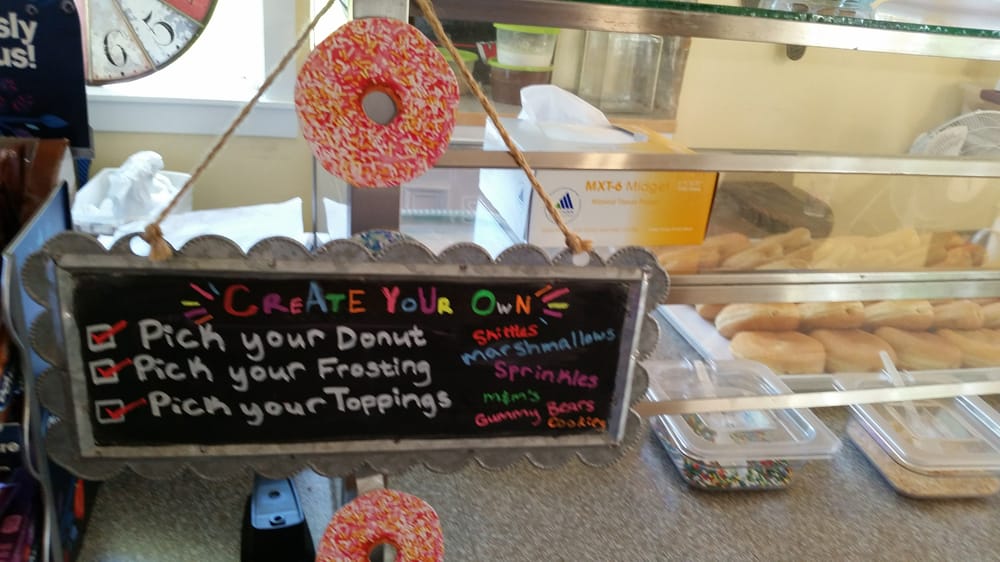 sly
us!
6
5
MXT-6 Midget
CREATE YOUR OWN
Pick your Donut
Pick your Frosting
Pick your Toppings
Skittles
marshmallows
Sprinkles
m&m's
Gummy Bears
Cookies